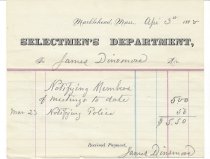 Marblehead, Mass. Apr 3rd 18
SELECTMEN'S DEPARTMENT,
To James Dinsmore Dr.
Notifying Members
of meetings to date 5 00
Mar 23 Notifying Police 50
$5.50
Received Payment,
James Dinsmore